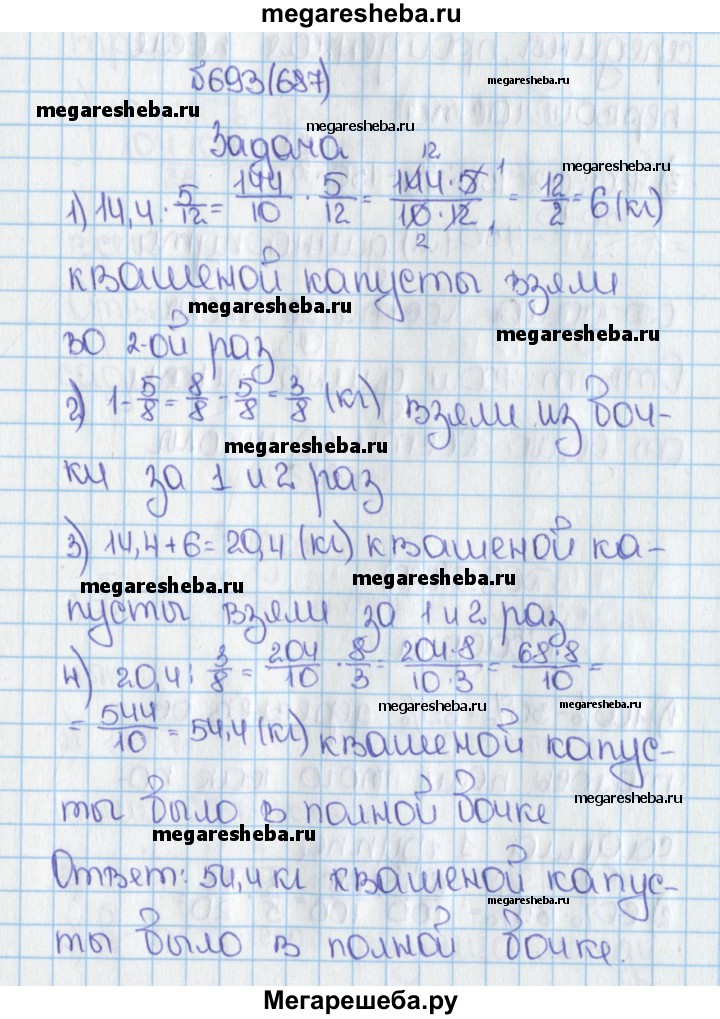 megaresheba.ru
№693(687)
megaresheba.ru
megaresheba.ru
megaresheba.ru
Задача
megaresheba.ru
1) 14,4 · 5/12 = 144/10 · 5/12 = 144·5/10·12 = 12/2 = 6 (кг)
12 1
2 1
квашеной капусты взяли
megaresheba.ru
megaresheba.ru
во 2-ой раз
2) 1 - 5/8 = 8/8 - 5/8 = 3/8 (кг) взяли из боч-
megaresheba.ru
ки за 1 и 2 раз
3) 14,4 + 6 = 20,4 (кг) квашеной ка-
megaresheba.ru
megaresheba.ru
пусты взяли за 1 и 2 раз
4) 20,4 : 3/8 = 204/10 · 8/3 = 204·8/10·3 = 68·8/10 =
megaresheba.ru
megaresheba.ru
= 544/10 = 54,4 (кг) квашеной капус-
ты было в полной бочке
megaresheba.ru
megaresheba.ru
Ответ: 54,4 кг квашеной капус-
megaresheba.ru
ты было в полной бочке.
megaresheba.ru
Мегарешеба.ру